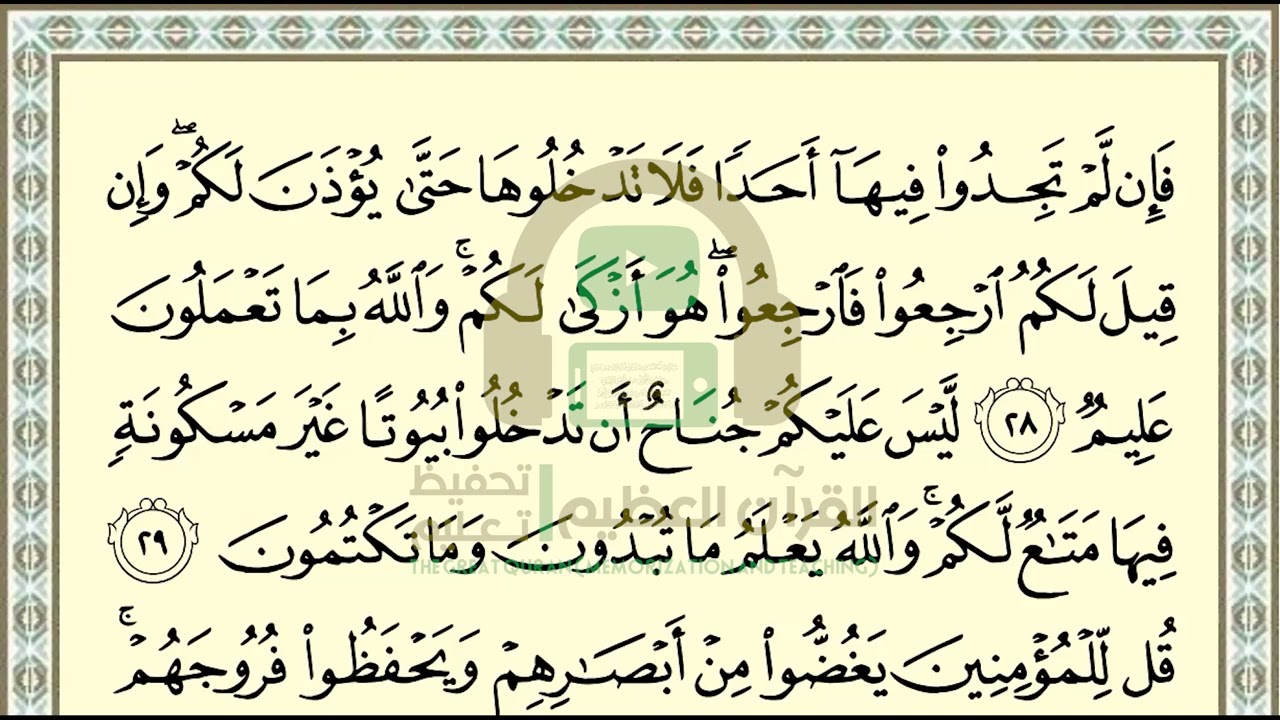 فَإِن لَّمْ تَجِدُوا۟ فِيهَآ أَحَدًا فَلَا تَدْخُلُوهَا حَتَّىٰ يُؤْذَنَ لَكُمْ ۖ وَإِن
قِيلَ لَكُمُ ٱرْجِعُوا۟ فَٱرْجِعُوا۟ ۖ هُوَ أَزْكَىٰ لَكُمْ ۚ وَٱللَّهُ بِمَا تَعْمَلُونَ
عَلِيمٌ ٢٨ لَّيْسَ عَلَيْكُمْ جُنَاحٌ أَن تَدْخُلُوا۟ بُيُوتًا غَيْرَ مَسْكُونَةٍ
القرآن العظيم تحفيظ
تعليم
فِيهَا مَتَـٰعٌ لَّكُمْ ۚ وَٱللَّهُ يَعْلَمُ مَا تُبْدُونَ وَمَا تَكْتُمُونَ ٢٩
THE GREAT QURAN (MEMORIZATION AND TEACHING)
قُل لِّلْمُؤْمِنِينَ يَغُضُّوا۟ مِنْ أَبْصَـٰرِهِمْ وَيَحْفَظُوا۟ فُرُوجَهُمْ ۚ